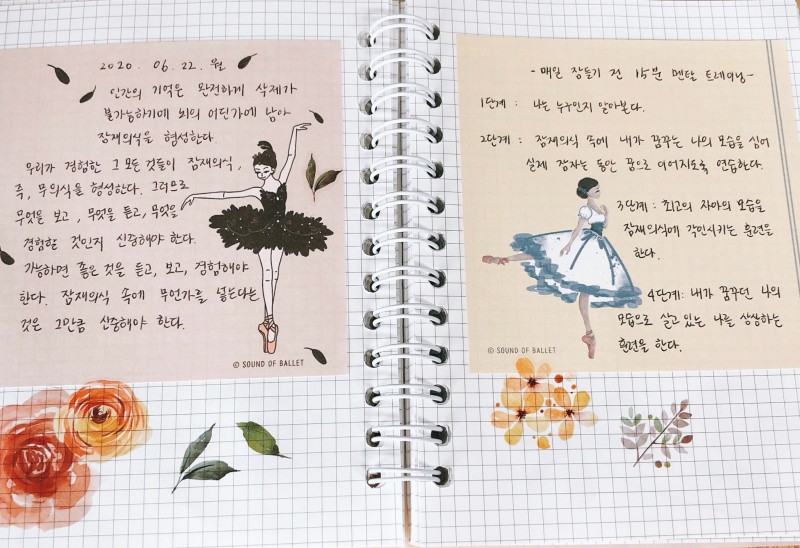 2020. 06. 22. 월
인간의 기억은 완전하게 삭제가
불가능하기에 뇌의 어딘가에 남아
잠재의식을 형성한다.
우리가 경험한 그 모든 것들이 잠재의식,
즉, 무의식을 형성한다. 그러므로
무엇을 보고, 무엇을 듣고, 무엇을
경험할 것인지 신중해야 한다.
가능하면 좋은 것을 듣고, 보고, 경험해야
한다. 잠재의식 속에 무언가를 넣는다는
것은 그만큼 신중해야 한다.
© SOUND OF BALLET
- 매일 잠들기 전 15분 멘탈 트레이닝 -
1단계 : 나는 누구인지 알아본다.
2단계 : 잠재의식 속에 내가 꿈꾸는 나의 모습을 심어
실제 잠자는 동안 꿈으로 이어지도록 연습한다.
3단계 : 최고의 자아의 모습을
잠재의식에 각인시키는 훈련을
한다.
4단계: 내가 꿈꾸던 나의
모습으로 살고 있는 나를 상상하는
훈련을 한다.
© SOUND OF BALLET